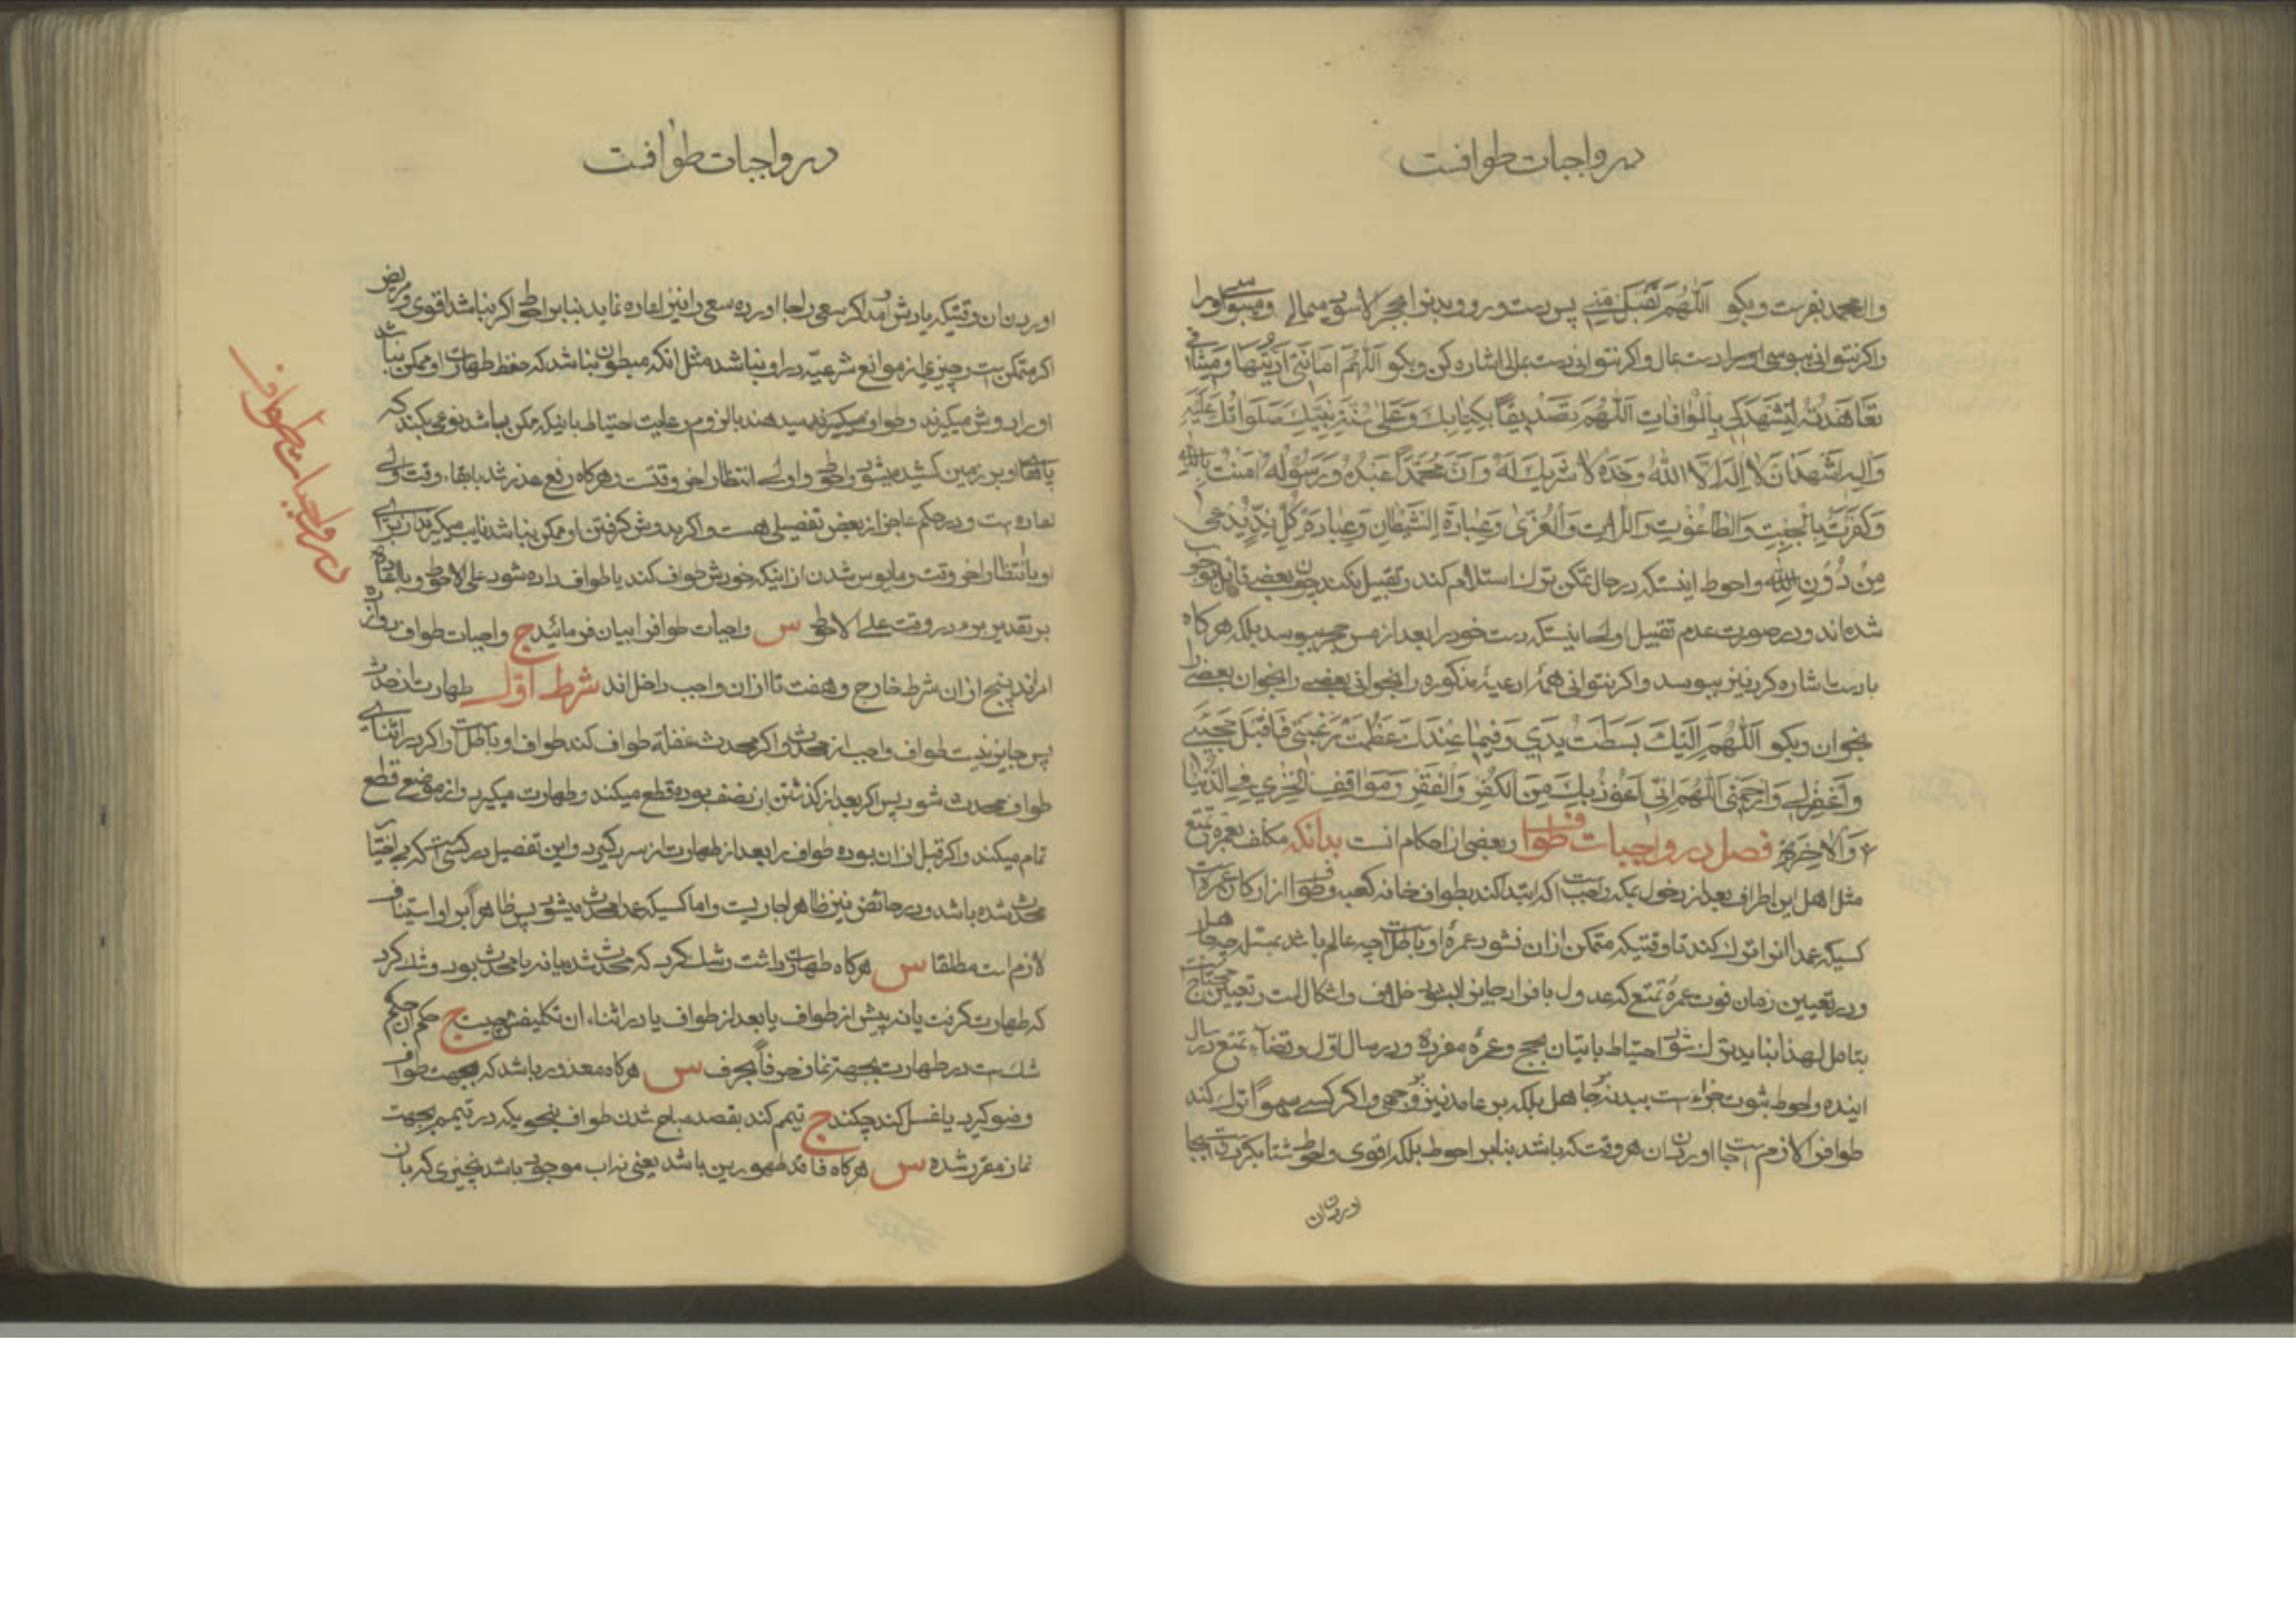 در واجبات طوافست
وال محمد بفرست و بکو اَللّهُمَّ تَقَبَّلْ مِنّي پس دست و رو و بدنرا بحجر الاسود میمالی و میبوسی اورا
واکر نتوانی ببوسی اورا دست بمال واکر نتوانی دست بمالی اشاره کن و بکو اَللّهُمَّ اَمانَتي اَدَّيْتُها وَميثاقي
تَعاهَدْتُهُ لِتَشْهَدَ لي بِالْمُوافاتِ اَللّهُمَّ تَصْديقًا بِكِتابِكَ وَعَلى سُنَّةِ نَبِيِّكَ صَلَواتُكَ عَلَيْهِ
وَآلِهِ اَشْهَدُ اَنْ لا اِلهَ اِلّا اللهُ وَحْدَهُ لا شَريكَ لَهُ وَاَنَّ مُحَمَّدًا عَبْدُهُ وَرَسُولُهُ امَنْتُ بِاللهِ
وَكَفَرْتُ بِالْجِبْتِ وَالطّاغُوتِ وَاللّاتِ وَالْعُزّى وَعِبادَةِ الشَّيْطانِ وَعِبادَةِ كُلِّ نِدٍّ يُدْعى
مِنْ دُونِ اللهِ واحوط اینستکه در حال تمکن ترک استلام کند و تقبیل نکند چون بعضی قائل بوجوب
شده اند و در صورت عدم تقبیل اولی اینستکه دست خود را بعد از مس حجر ببوسد بلکه هرکاه
بادست اشاره کرد نیز ببوسد واکر نتوانی همهٔ ادعیهٔ مذکوره را بخوانی بعضی را بخوان بعضی را
بخوان و بکو اَللّهُمَّ اِلَيْكَ بَسَطْتُ يَدي وَفيما عِنْدَكَ عَظُمَتْ رَغْبَتي فَاقْبَلْ
وَاغْفِرْ لي وَارْحَمْني اَللّهُمَّ اِنّي اَعُوذُ بِكَ مِنَ الْكُفْرِ وَالْفَقْرِ وَمَواقِفِ الْخِزْيِ فِي الدُّنْيا
وَالْاخِرَةِ فصل در واجبات طواف و بعضی از احکام انست بدانکه مکلف بعمره تمتع
مثل اهل این اطراف بعد از دخول بمکه واجب است اکه ابتدا کند بطواف خانه کعبه و طواف از ارکان عمره است
کسیکه عمدا انرا ترک کند تا وقتیکه متمکن ازان نشود عمرهٔ او باطل است چه عالم باشد بمسئله چه جاهل
و در تعیین زمان فوت عمرهٔ تمتع که عدول بافراد جایز خلاف و اشکال است و تعیین محتاج
بتامل لهذا نباید ترک احتیاط باتیان بحج و عمرهٔ مفرده در سال اوّل و قضاء تمتع در سال
اینده واحوط ثبوت جزاء است ببدنه بر جاهل بلکه بر عامد نیز واکر کسی سهواً ترک کند
طوافرا لازم است بجا اوردن ان هر وقت که باشد بنابر احوط بلکه اقوی واحوط
اوردن ان
در واجبات طوافست
اوردن ان وقتیکه یادش آمد اکر سعی را بجا اورده سعی را نیز اعاده نماید بنابر احوط اکر نباشد اقوی و مریض
اکر متمکن است و چیزی از موانع شرعیّه در او نباشد مثل انکه مبطون نباشد که حفظ طهارت او ممکن نباشد
اورا بدوش میکیرند و طواف میدهند با لزوم رعایت احتیاط باینکه ممکن باشد نوعی بکنند که
پاهای او بر زمین کشیده میشود واحوط و اولی انتظار اخر وقتست و هرکاه رفع عذر شد با بقاء وقت اولی
اعاده است و در حکم عاجز از بعض تفصیلی هست واکر بدوش کرفتن او ممکن نباشد نایب میکیرند از برای
او با انتظار اخر وقت و مایوس شدن از اینکه خودش طواف کند یا طواف داده شود علی الاحوط و با اعاده
بر تقدیر برء در وقت علی الاحوط س واجبات طوافرا بیان فرمائید ج واجبات طواف دوازده
امراند پنج ازان شرط خارج و هفت تا ازان واجب داخل اند شرط اوّل طهارت از حدث
پس جایز نیست طواف واجب از محدث واکر محدث غفلة طواف کند طواف او باطل است واکر در اثنای
طواف محدث شود پس اکر بعد از کذشتن از نصف بوده قطع میکند و طهارت میکیرد و از موضع قطع
تمام میکند واکر قبل از ان بوده طواف را بعد از طهارت از سر کیرد و این تفصیل در کسی است که بی اختیار
محدث شده باشد و در حائض نیز ظاهرا جاریست و اما کسیکه عمدا محدث میشود پس ظاهراً بر او استیناف
لازم است مطلقا س هرکاه طهارت داشت و شک کرد که محدث شده یا نه یا محدث بود و شک کرد
که طهارت کرفت یا نه پیش از طواف یا بعد از طواف یا در اثناء ان تکلیفش چیست ج حکم ان حکم
شک است در طهارت بجهت نماز حرفاً بحرف س هرکاه معذور باشد که بجهت طواف
وضو کیرد یا غسل کند چکند ج تیمم کند بقصد مباح شدن طواف بنحویکه در تیمم بجهت
نماز مقرر شده س هرکاه فاقد طهورین باشد یعنی نه اب موجود باشد نه چیزی که بان
در واجبات طواف